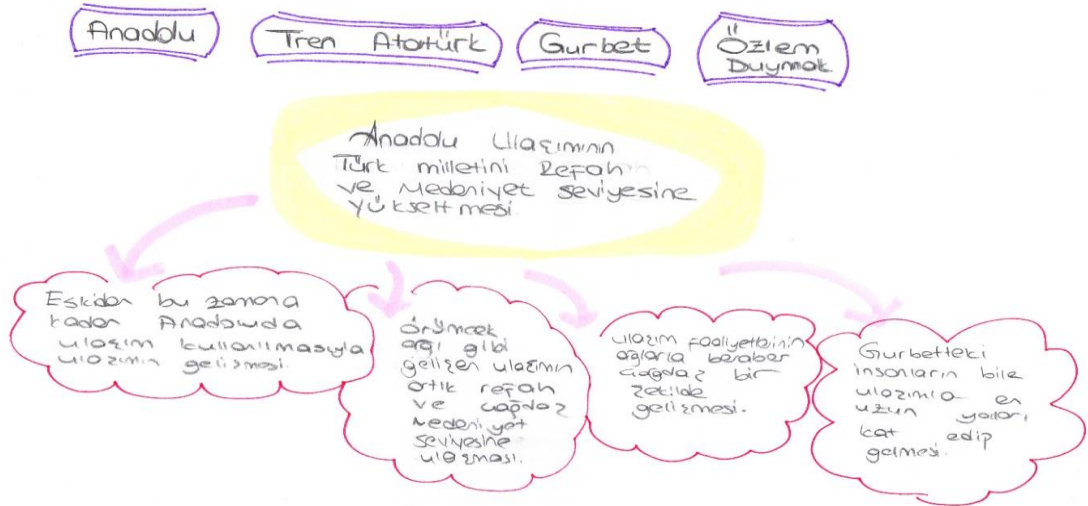 Anadolu
Tren Atatürk
Gurbet
Özlem
Duymak
Anadolu Ulaşımının
Türk milletini Refah
ve Medeniyet seviyesine
yükseltmesi.
Eskiden bu zamana
kadar Anadoluda
ulaşım kullanılmasıyla
ulaşımın gelişmesi.
örümcek
ağı gibi
gelişen ulaşımın
artık refah
ve çağdaş
Medeniyet
seviyesine
ulaşması.
ulaşım faaliyetlerinin
ağlarla beraber
çağdaş bir
şekilde
gelişmesi.
Gurbetteki
insanların bile
ulaşımla en
uzun yolları
kat edip
gelmesi.